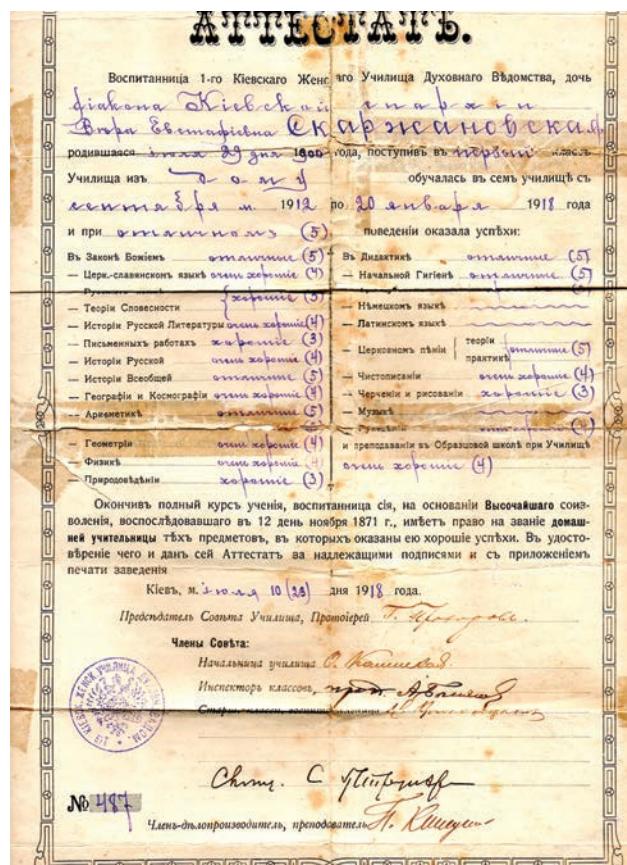 АТТЕСТАТЪ.
Воспитанница 1-го Кіевскаго Женскаго Училища Духовнаго Вѣдомства, дочь
діакона Кіевской епархіи
Вѣра Евстафіевна Скаржановская,
родившаяся іюля 29 дня 1900 года, поступивъ въ первый классъ
Училища изъ дому обучалась въ семъ училищѣ съ
сентября м. 1912 по 20 января 1918 года
и при отличномъ (5) поведеніи оказала успѣхи:
Въ Законѣ Божіемъ отличные (5)
— Церк.-славянскомъ языкѣ очень хорошіе (4)
— Теоріи Словесности хорошіе (3)
— Исторіи Русской Литературы очень хорошіе (4)
— Письменныхъ работахъ хорошіе (3)
— Исторіи Русской очень хорошіе (4)
— Исторіи Всеобщей отличные (5)
— Географіи и Космографіи очень хорошіе (4)
— Ариѳметикѣ отличные (5)
— Геометріи очень хорошіе (4)
— Физикѣ очень хорошіе (4)
— Природовѣдѣніи хорошіе (3)
Въ Дидактикѣ отличные (5)
— Начальной Гигіенѣ отличные (5)
— Нѣмецкомъ языкѣ
— Латинскомъ языкѣ
— Церковномъ пѣніи теоріи практикѣ отличные (5)
— Чистописаніи очень хорошіе (4)
— Черченіи и рисованіи хорошіе (3)
— Музыкѣ
— Рукодѣліи (4)
и преподаваніи въ Образцовой школѣ при Училищѣ
очень хорошіе (4)
Окончивъ полный курсъ ученія, воспитанница сія, на основаніи Высочайшаго соиз-
воленія, воспослѣдовавшаго въ 12 день ноября 1871 г., имѣетъ право на званіе домаш-
ней учительницы тѣхъ предметовъ, въ которыхъ оказаны ею хорошіе успѣхи. Въ удосто-
вѣреніе чего и данъ сей Аттестатъ за надлежащими подписями и съ приложеніемъ
печати заведенія
Кіевъ, м. іюля 10 (23) дня 1918 года.
Предсѣдатель Совѣта Училища, Протоіерей
Члены Совѣта:
Начальница училища
Инспекторъ классовъ, прот.
№ 487
Членъ-дѣлопроизводитель, преподаватель